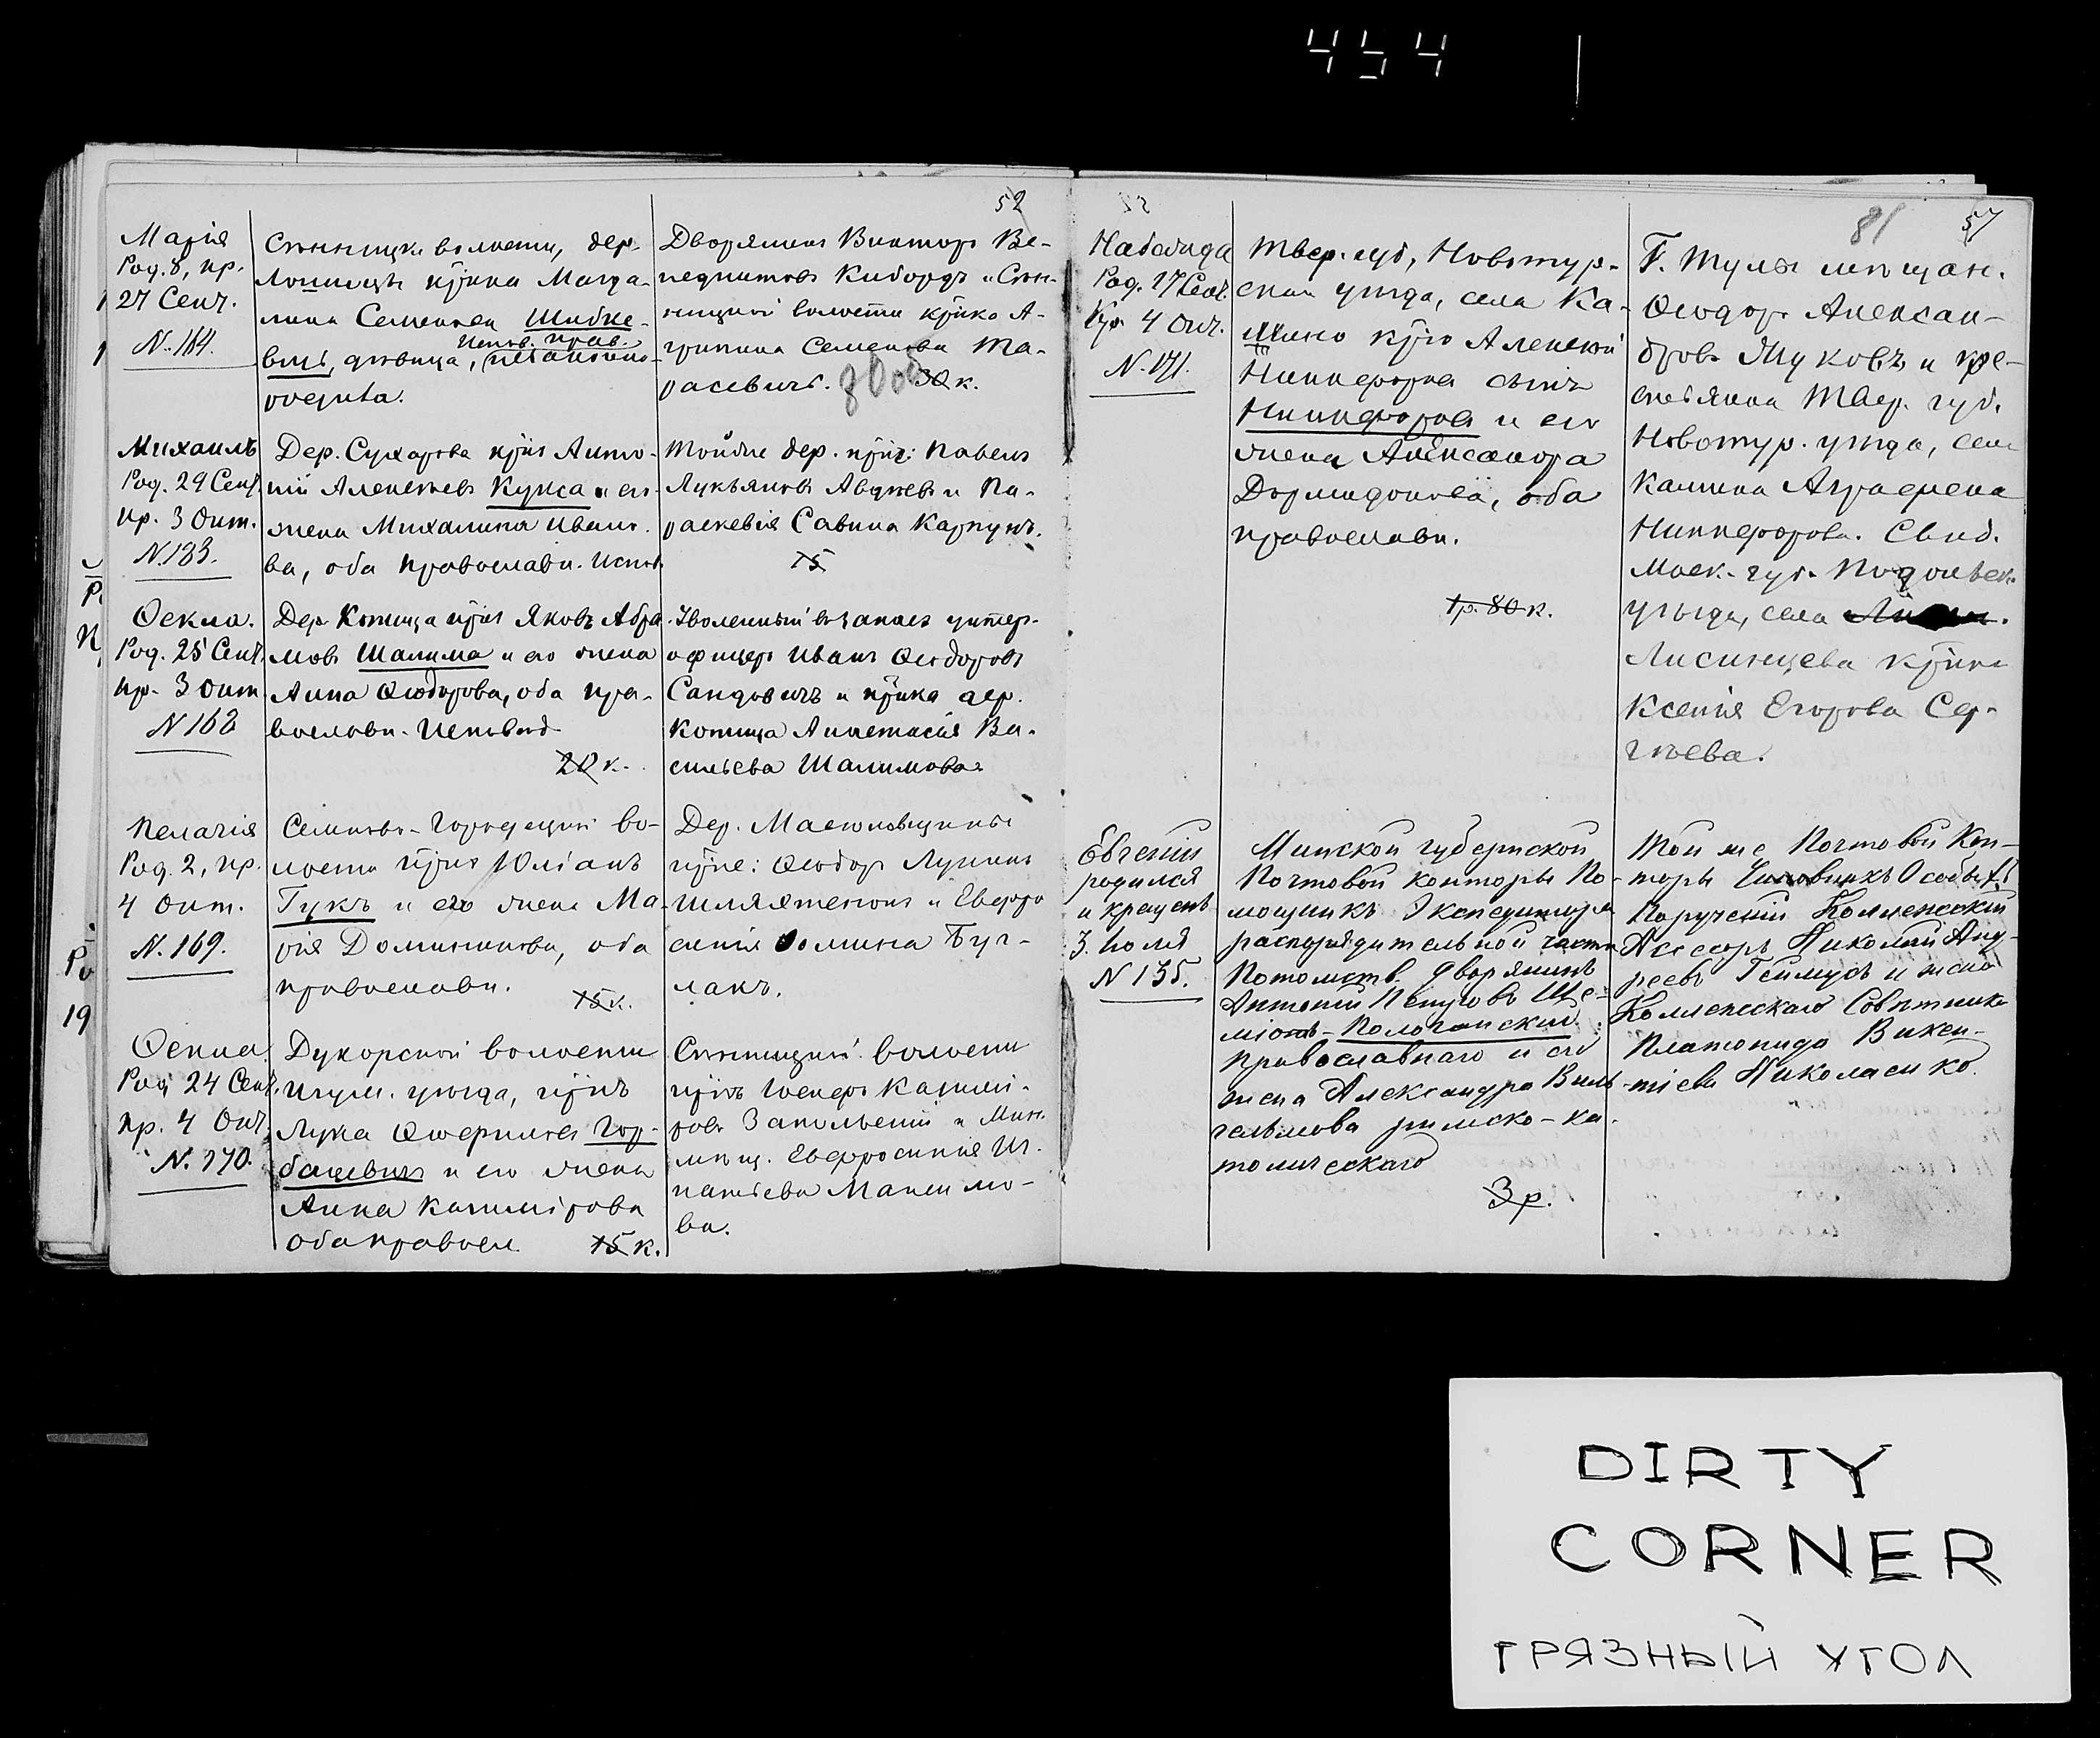 454
52
Марія
Род. 8, кр.
27 Сент.
N. 164.
волости, дер.
Лошица кр͞нка Магда-
лина Семенова Шибке-
Испов. прав.
вичъ, дѣвица,
Дворянинъ Викторъ Ве-
Кибордъ и Сѣн-
ницкой волости кр͞нка А-
грипина Семенова Та-
расевичъ. 30 к.
Михаилъ
Род. 29 Сент.
кр. 3 Окт.
N. 183.
Дер. Сухарева кр͞нъ Анто-
ній Алексѣевъ Кукса и его
жена Михалина Ивано-
ва, оба православн. Испов.
Той же дер. кр͞не: Павелъ
Лукьяновъ Авдѣевъ и Па-
раскевія Савина Карпукъ.
15
Ѳекла.
Род. 25 Сент.
кр. 3 Окт.
N 168
Дер. Копища кр͞нъ Яковъ Абра-
мовъ Шалима и его жена
Анна Ѳедорова, оба пра-
вославн. Исповѣд
20 к.
Уволенный въ запасъ унтер-
офицеръ Иванъ Ѳеодоровъ
Сандовичъ и кр͞нка дер.
Копища Анастасія Ва-
сильева Шалимова.
Пелагія
Род. 2, кр.
4 Окт.
N. 169.
Семково-Городецкой во-
лости кр͞нъ Юліанъ
Гукъ и его жена Ма-
рія Доминикова, оба
православн.
15 к.
Дер. Масюковщины
кр͞не: Ѳеодоръ Лукинъ
и Евфро
синія Ѳомина Буг-
лакъ.
Ѳекла
Род. 24 Сент.
кр. 4 Окт.
N. 170.
Дукорской волости
Игум. уѣзда, кр͞нъ
Лука Гор-
бацевичъ и его жена
Анна Казимірова
оба правосл. 15 к.
Сѣнницкой волости
кр͞нъ Іосифъ Казимі-
ровъ Запольскій и Мин.
мѣщ. Евфросинія Иг-
натьева Максимо-
ва.
81
57
Род. 27 Сент.
Кр. 4 Окт.
N. 171.
Твер. губ, Новотур-
скаго уѣзда, села Ка-
мино кр͞нъ Алексѣй
Никифоровъ сынъ
Никифоровъ и его
жена Александра
Дормидонова, оба
православн.
1 р. 80 к.
Г. Тулы мѣщан.
Ѳеодоръ Алексан-
дровъ Жуковъ и кре-
стьянка Твер. губ.
Новотур. уѣзда, села
Камина Аграфена
Никифорова. Свид.
Моск. губ. Подольск.
уѣзда, села
Лисинцева кр͞нка
Ксенія Егорова Сер-
гѣева.
Евгеній
родился
и крещенъ
3. Іюля
N 135.
Минской губернской
Почтовой конторы По-
мощникъ Экспедитора
распорядительной части
Потомств. Дворянинъ
Антоній Петровъ Ше-
міотъ-Полочанскій
Православнаго и его
жена Александра Виль-
гельмова римско-ка-
толическаго
3 р.
Той же Почтовой Кон-
торы Чиновникъ Особыхъ
Порученій Коллежскій
Ассесоръ Николай Анд-
реевъ Геймусъ и жена
Коллежскаго Совѣтника
Платонида Викен-
тіева Николаенко.
DIRTY
CORNER
ГРЯЗНЫЙ УГОЛ